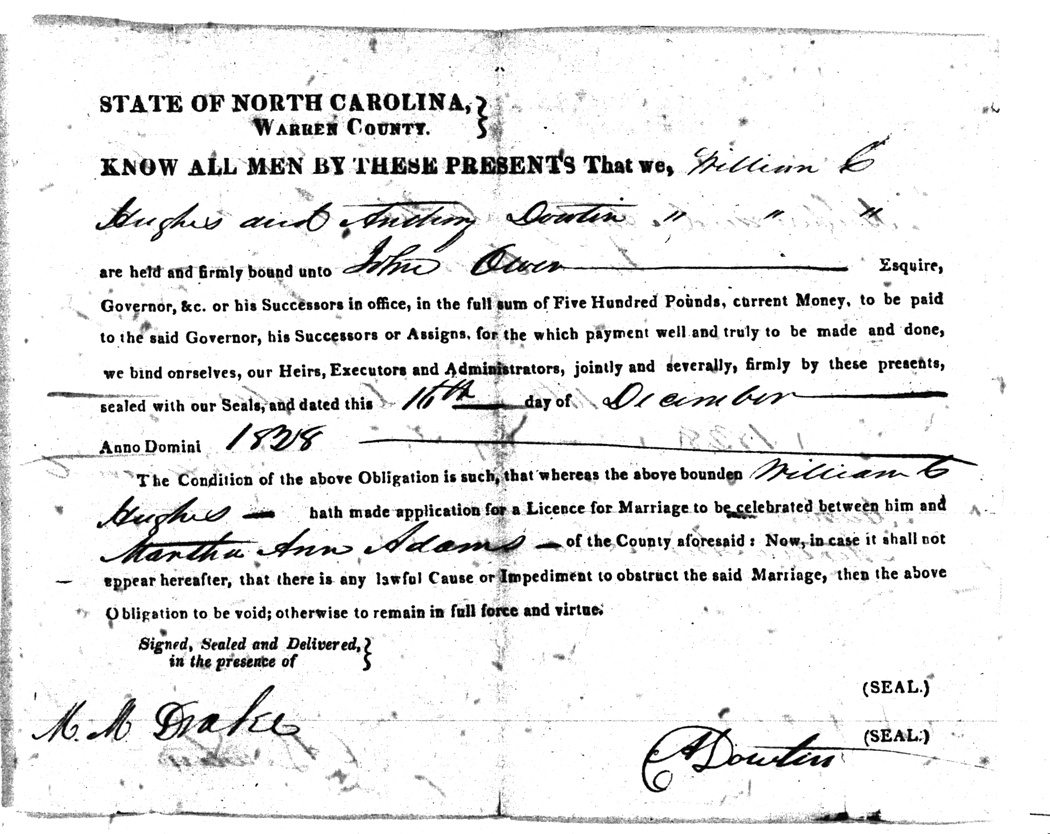 STATE OF NORTH CAROLINA, }
WARREN COUNTY.
KNOW ALL MEN BY THESE PRESENTS That we, William C
Hughes and Anthony Dowtin " " "
are held and firmly bound unto John Owen Esquire,
Governor, &c. or his Successors in office, in the full sum of Five Hundred Pounds, current Money, to be paid
to the said Governor, his Successors or Assigns, for the which payment well and truly to be made and done,
we bind onrselves, our Heirs, Executors and Administrators, jointly and severally, firmly by these presents,
sealed with our Seals, and dated this 16th day of December
Anno Domini 1828
The Condition of the above Obligation is such, that whereas the above bounden William C
Hughes — hath made application for a Licence for Marriage to be celebrated between him and
Martha Ann Adams — of the County aforesaid: Now, in case it shall not
appear hereafter, that there is any lawful Cause or Impediment to obstruct the said Marriage, then the above
Obligation to be void; otherwise to remain in full force and virtue.
Signed, Sealed and Delivered, }
in the presence of
(SEAL.)
M. M Drake
(SEAL.)
A Dowtin